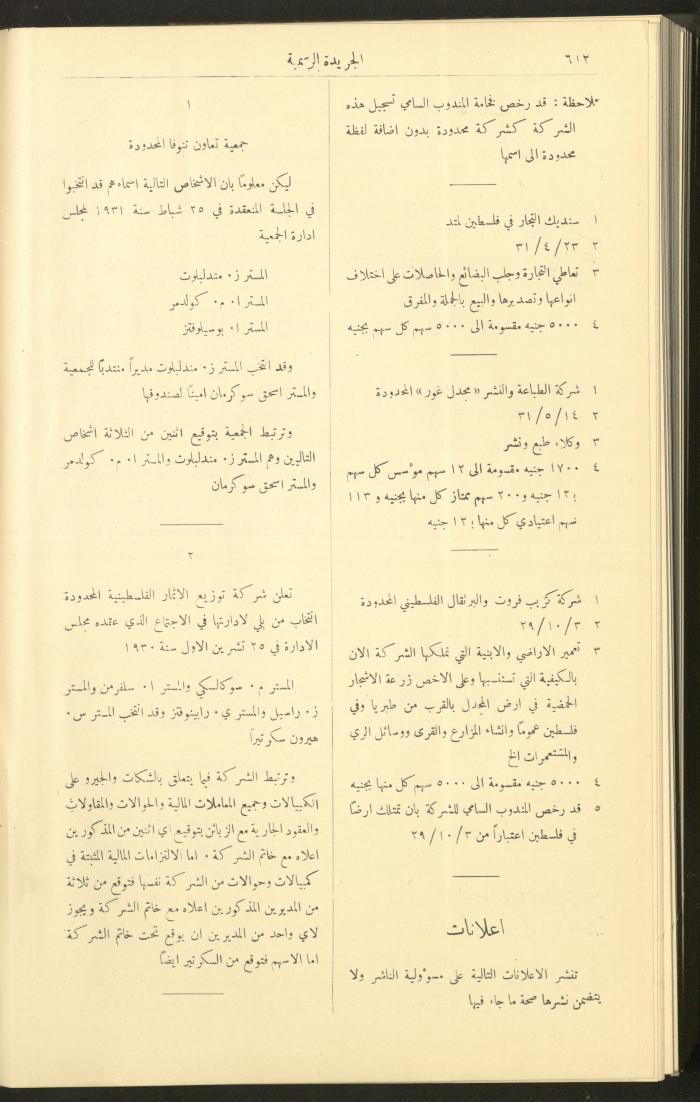 ٦١٢
الجريدة الرسمية
ملاحظة : قد رخص فخامة المندوب السامي تسجيل هذه
الشركة كشركة محدودة بدون اضافة لفظة
محدودة الى اسمها
١ سنديك التجار في فلسطين لمتد
٢ ٣١/٤/٢٣
٣ تعاطي التجارة وجلب البضائع والحاصلات على اختلاف
انواعها وتصديرها والبيع بالجملة والمفرق
٤ ٥٠٠٠ جنيه مقسومة الى ٥٠٠٠ سهم كل سهم بجنيه
١ شركة الطباعة والنشر «مجدل غور» المحدودة
٢ ٣١/٥/١٤
٣ وكلاء طبع ونشر
٤ ١٧٠٠ جنيه مقسومة الى ١٢ سهم موٴسس كل سهم
بـ١٢ جنيه و٢٠٠ سهم ممتاز كل منها بجنيه و ١١٣
سهم اعتيادي كل منها بـ١٢ جنيه
١ شركة كريب فروت والبرتقال الفلسطيني المحدودة
٢ ٢٩/١٠/٣
٣ تعمير الاراضي والابنية التي تملكها الشركة الان
بالكيفية التي تستنسبها وعلى الاخص زرعة الاشجار
الحمضية في ارض المجدل بالقرب من طبريا وفي
فلسطين عموماً وانشاء المزارع والقرى ووسائل الري
والمستعمرات الخ
٤ ٥٠٠٠ جنيه مقسومة الى ٥٠٠٠ سهم كل منها بجنيه
٥ قد رخص المندوب السامي للشركة بان تمتلك ارضاً
في فلسطين اعتباراً من ٢٩/١٠/٣
اعلانات
تنشر الاعلانات التالية على مسوٴولية الناشر ولا
يتضمن نشرها صحة ما جاء فيها
١
جمعية تعاون تنوفا المحدودة
ليكن معلوماً بان الاشخاص التالية اسماءهم قد انتخبوا
في الجلسة المنعقدة في ٢٥ شباط سنة ١٩٣١ لمجلس
ادارة الجمعية
المستر ز٠ مندلبلوت
المستر ا٠ م٠ كولدمر
المستر ا٠ بوسيلوفتز
وقد انتخب المستر ز٠ مندلبلوت مديراً منتدباً للجمعية
والمستر اسحق سوكرمان اميناً لصندوقها
وترتبط الجمعية بتوقيع اثنين من الثلاثة اشخاص
التاليين وهم المستر ز٠ مندلبلوت والمستر ا٠ م٠ كولدمر
والمستر اسحق سوكرمان
٢
تعلن شركة توزيع الاثمار الفلسطينية المحدودة
انتخاب من يلي لادارتها في الاجتماع الذي عقده مجلس
الادارة في ٢٥ تشرين الاول سنة ١٩٣٠
المستر م٠ سوكالسكي والمستر ا٠ سلفرمن والمستر
ز٠ راسيل والمستر ي٠ رابينوفتز وقد انتخب المستر س٠
هيرون سكرتيراً
وترتبط الشركة فيما يتعلق بالشكات والجيرو على
الكمبيالات وجميع المعاملات المالية والحوالات والمقاولات
والعقود الجارية مع الزبائن بتوقيع اي اثنين من المذكورين
اعلاه مع خاتم الشركة٠ اما الالتزامات المالية المثبتة في
كمبيالات وحوالات من الشركة نفسها فتوقع من ثلاثة
من المديرين المذكورين اعلاه مع خاتم الشركة ويجوز
لاي واحد من المديرين ان يوقع تحت خاتم الشركة
اما الاسهم فتوقع من السكرتير ايضاً